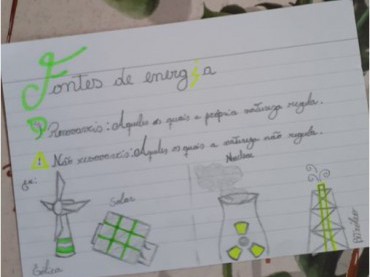 Fontes de energia
Renováveis: Aqueles os quais a própria natureza regula.
Não renováveis: Aqueles os quais a natureza não regula.
Ex:
Nuclear
Solar
Eólica
Petróleo